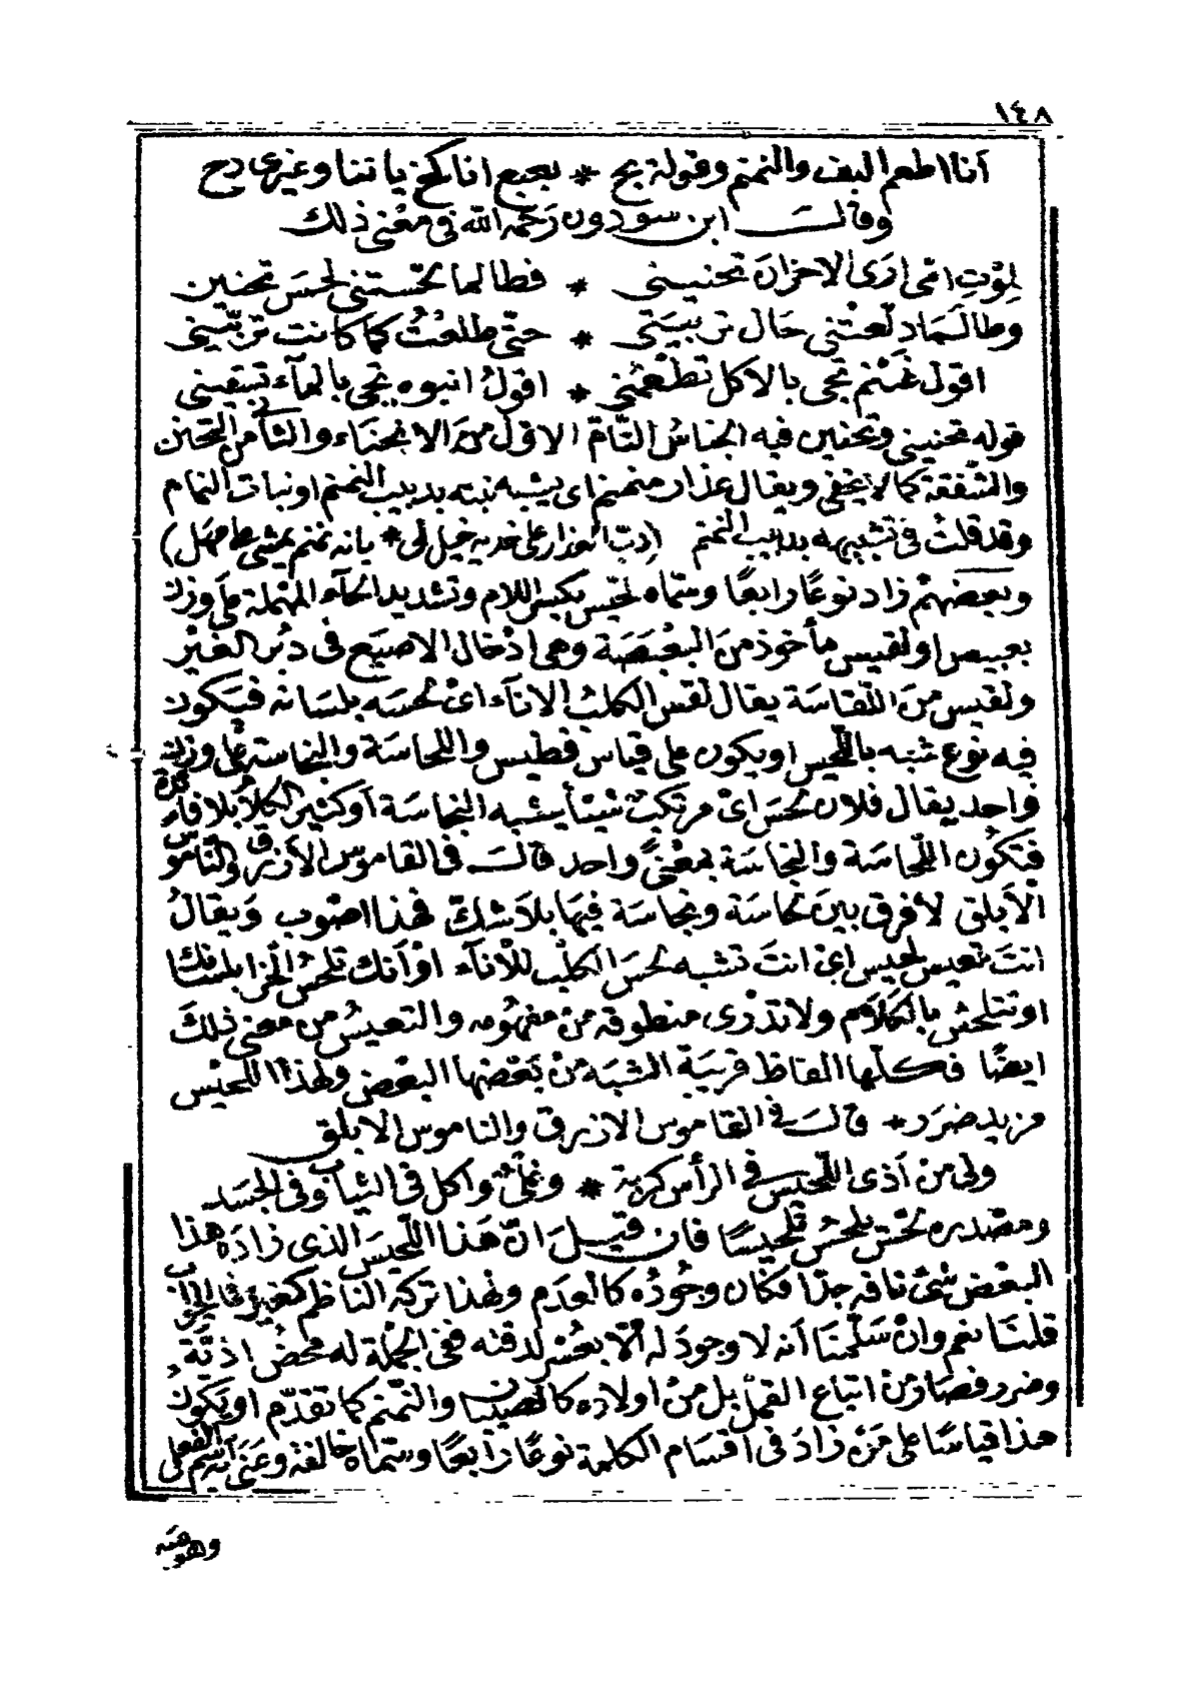 ١٤٨
أنا اطعم البف والنمنم وقولة بح * بعبع انا كخ يا تنا وغيرى دح
وقالــ ابن سودون رَحمه الله فى معنى ذلك
لموْتِ امّى ارَى الاحزان تحنينى * فطالما لحّستنى لحسَ تحنين
وطالَما دلّعتْنى حَال تربيَتى * حتّى طلعْتُ كما كانت تربّينى
اقول نمنم تجى بالاكل تطعمْنى * اقولُ انبوه تجى بالمآء تسقينى
قوله تحنينى وتحنين فيه الجناس التّامّ الاوّل منَ الانحناء والثانى من التحنن
والشّفقة كما لا يخفى ويقال عذار منمنم اى يشبه نبته بدبيب النمنم او نبات النمام
وقد قلتُ فى تشبيهه بدبيب النمنم (دبّ العذار على خديه خيل لى * بانه نمنم يمشى على مهل)
وبعضهمْ زاد نوعًا رابعًا وسمّاه لحّيس بكسر اللام وتشديد الحآء المهْملة على وزن
بعبيص او لقيس مأخوذ منَ البعْبَصَة وهى ادْخال الاصبَع فى دبُر الغيْر
ولقيس منَ اللّقاسَة يقال لقس الكلبُ الانآء اىْ لحسَه بلسَانه فيَكون
فيه نوع شبه باللّحيس او يكون على قياس فطيس واللحاسَة والنجاسة على وزن
واحد يقال فلان لحَس اىْ مرتكبٌ شيئا يشبه النجاسَة أو كثير الكلام بلا فائدة
فتكُون اللّحاسَة والنجاسَة بمعْنًى واحد قالــ فى القاموس الأزرق والنّاموس
الأبلق لا فرق بين لحاسَة ونجاسَة فيهَا بلا شكّ فهذا اصْوب وَيقالُ
انتَ تعيس لحيس اىْ انتَ تشبه لحسَ الكلب للأنآء اوْ أنك تلحسُ الخرا بلسَانك
او تتلحّس بالكلام ولا تدْرى منطوقه منْ مفهُومه والتعيسُ من معنى ذلكَ
ايضًا فكلّها الفاظ قريبَة الشبَه منْ بَعْضها البعْض ولهذا اللحّيس
مزيد ضرَر * قالــ فى القاموس الازرق والناموس الابلق
ولى من أذى اللّحيس فى الرأس كربة * ونملٌ واكل فى الثياب وفى الجسَد
ومصْدره لحّس يلحّسُ تلحيسًا فان قيـل انّ هَذا اللّحيسَ الذى زادَه هذا
البعْض شىْ تافه جدّا فكان وجُودُه كالعدَم ولهذا تركه الناظم كغيره فى
قلنَا نعم وانْ سَلّمنَا أنه لا وجودَ له الّا بعُسْر لدقته ففى الجمْلة له محْضُ اذيَّة
وضرر فصَار منْ اتباع القمْل بل منْ اولاده كالصّيبان والنّمنم كما تقدّم او يَكونُ
هذا قياسًا على مَنْ زادَ فى اقسَام الكلمة نوعًا رَابعًا وسمّاهُ خالفة وعَنَى به اسْم الفعل
وهو صه